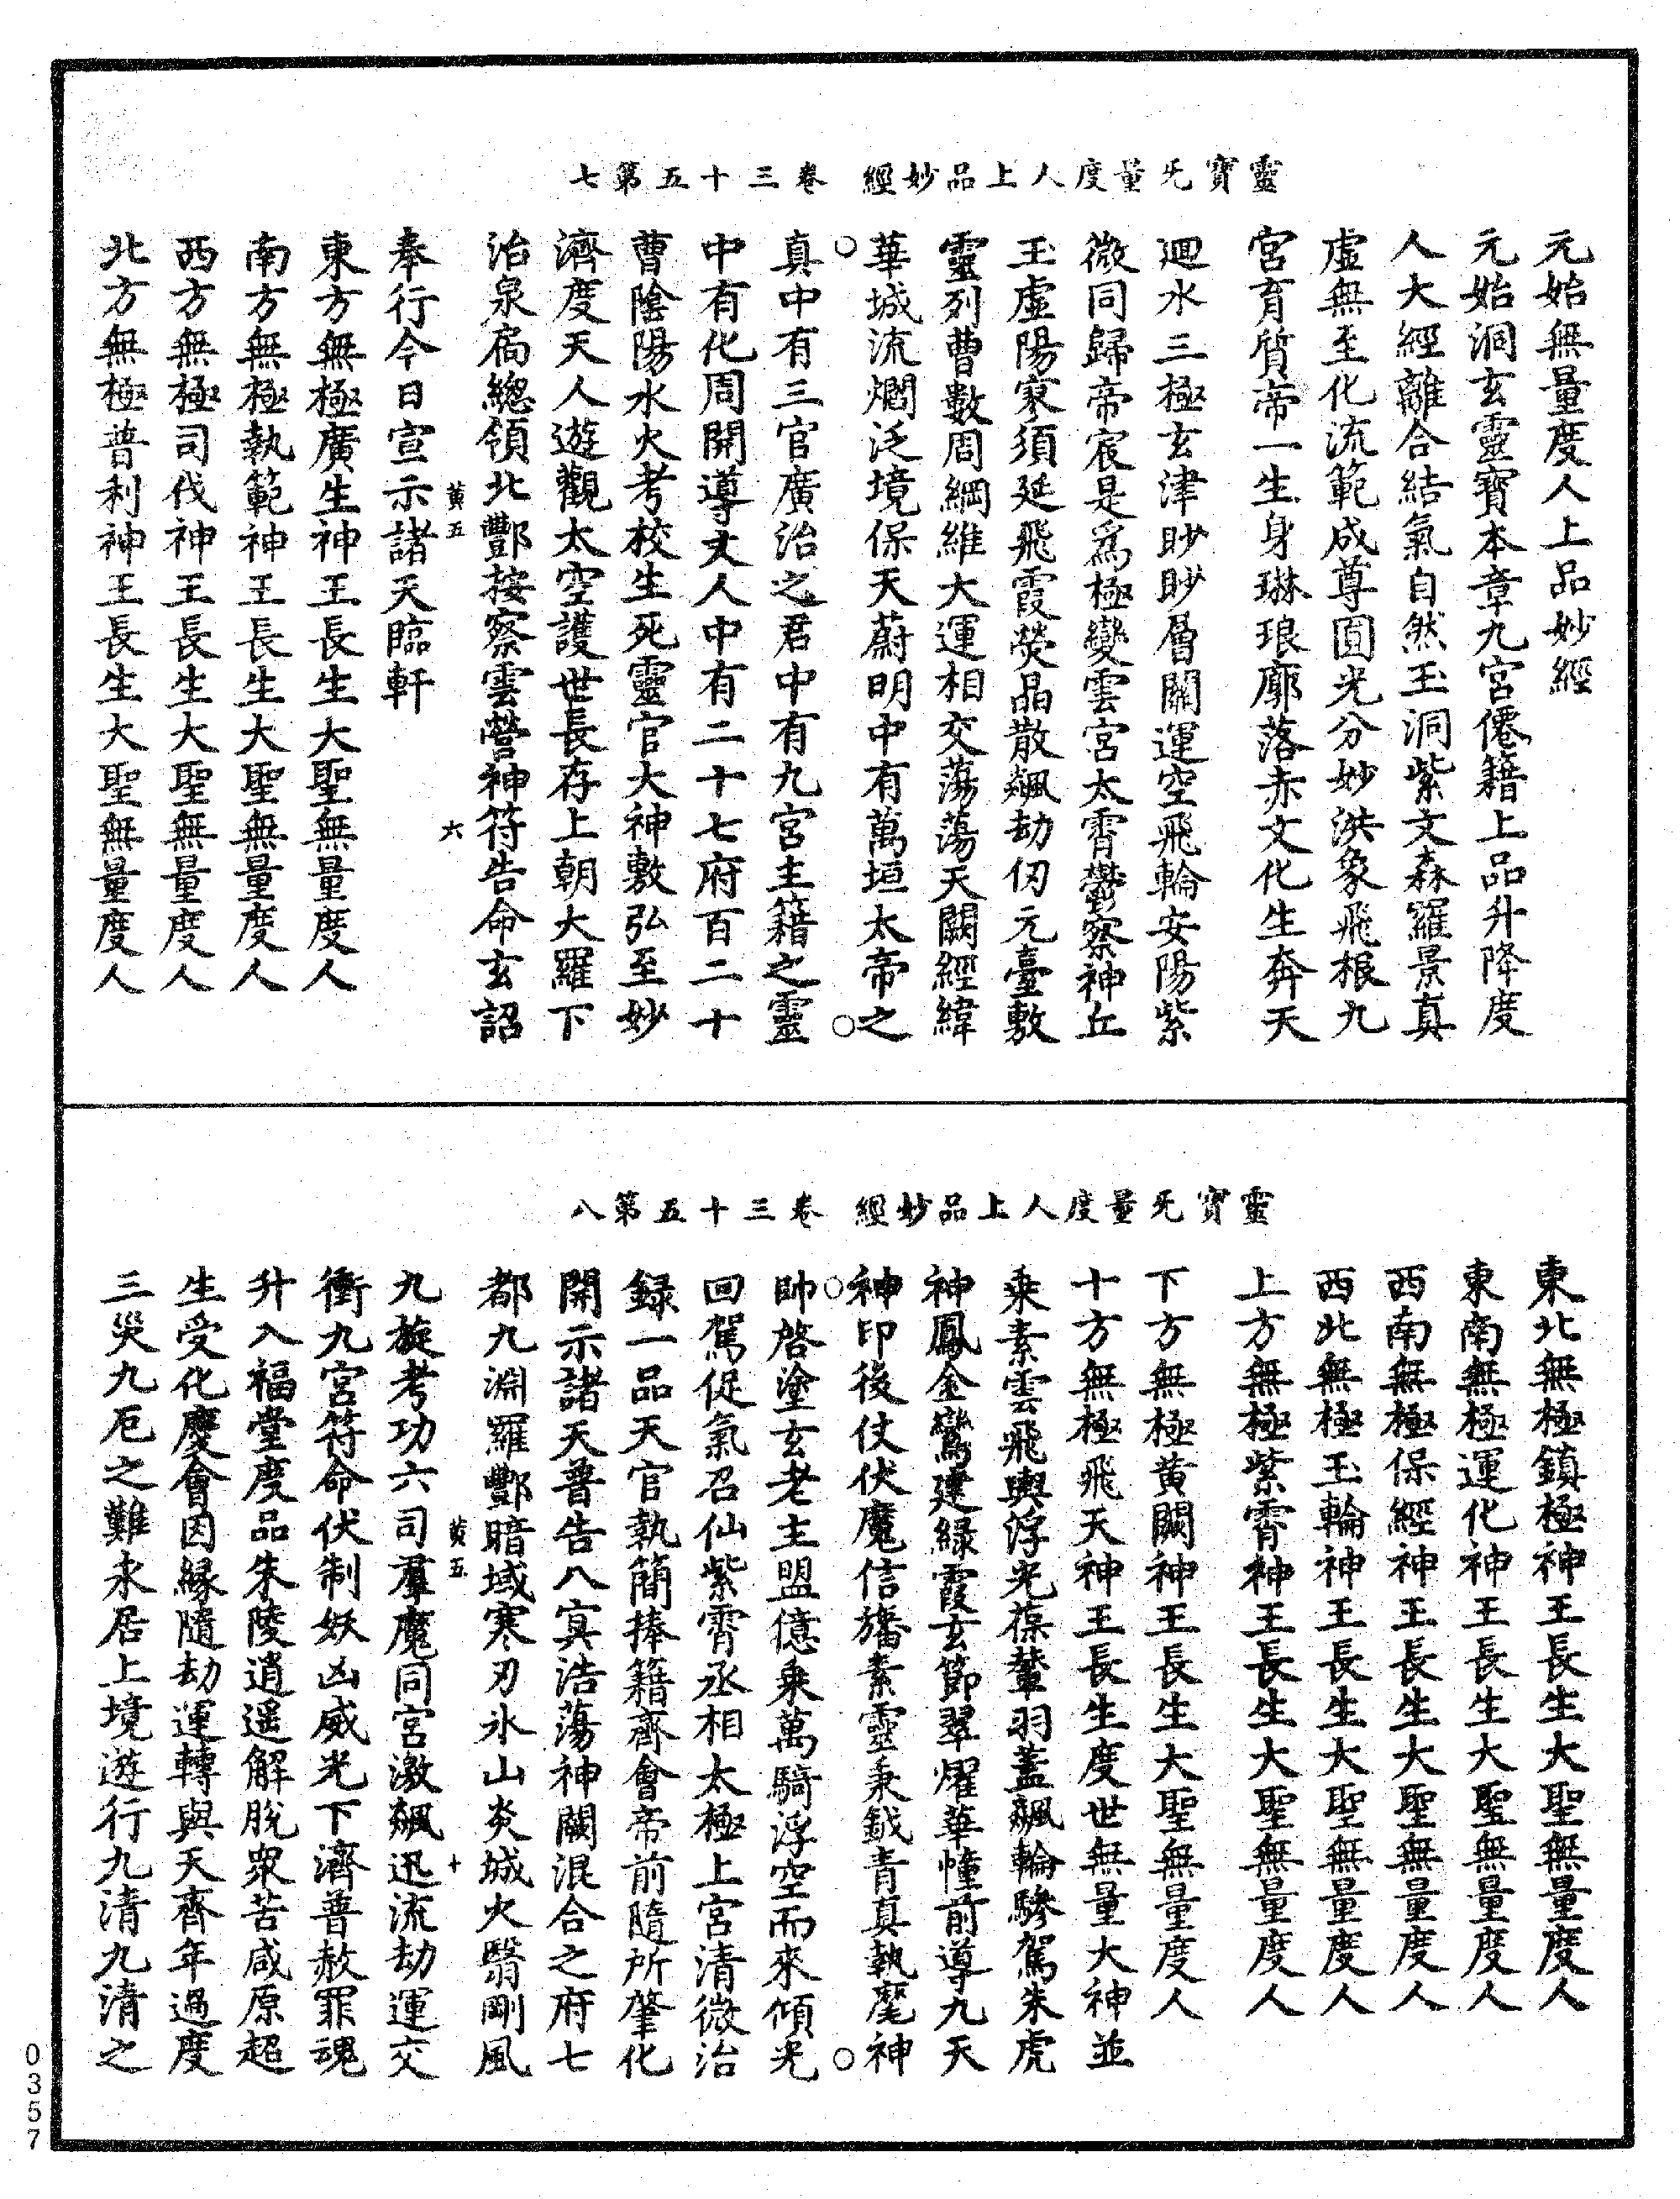 靈寶无量度人上品妙經　卷三十五第七
元始無量度人上品妙經
元始洞玄靈寶本章九宮僊籍上品升降度
人大經離合結氣自然玉洞紫文森羅景真
虛無至化流範成尊圓光分妙洪象飛根九
宮育質帝一生身琳琅廓落赤文化生奔天
迴水三極玄津眇眇層關運空飛輪安陽紫
微同歸帝宸是爲極變雲宮太霄鬱察神丘
玉虛陽寥須延飛霞熒晶散飊劫仞元臺敷
靈列曹數周綱維大運相交蕩蕩天關經緯
華城流爓泛境保天蔚明中有萬垣太帝之
真中有三官廣治之君中有九宮主籍之靈
中有化周開導丈人中有二十七府百二十
曹陰陽水火考校生死靈官大神敷弘至妙
濟度天人遊觀太空護世長存上朝大羅下
治泉扃總領北酆按察雲營神符告命玄詔
黃五　六
奉行今日宣示諸天臨軒
東方無極廣生神王長生大聖無量度人
南方無極執範神王長生大聖無量度人
西方無極司伐神王長生大聖無量度人
北方無極普利神王長生大聖無量度人
靈寶无量度人上品妙經　卷三十五第八
東北無極鎮極神王長生大聖無量度人
東南無極運化神王長生大聖無量度人
西南無極保經神王長生大聖無量度人
西北無極玉輪神王長生大聖無量度人
上方無極紫霄神王長生大聖無量度人
下方無極黃關神王長生大聖無量度人
十方無極飛天神王長生度世無量大神並
乘素雲飛輿浮光葆輦羽蓋飊輪驂駕朱虎
神鳳金鸞建綠霞玄節翠燿華幢前導九天
神印後仗伏魔信旛素靈秉鉞青真執麾神
帥啓塗玄老主盟億乘萬騎浮空而來傾光
回駕促氣召仙紫霄丞相太極上宮清微治
錄一品天官執簡捧籍齊會帝前隨所肇化
開示諸天普告八冥浩蕩神關混合之府七
都九淵羅酆暗域寒刃氷山炎城火翳剛風
黃五　十
九旋考功六司羣魔同宮激飊迅流劫運交
衝九宮符命伏制妖凶威光下濟普赦罪魂
升入福堂度品朱陵逍遥解脫衆苦咸原超
生受化慶會因緣隨劫運轉與天齊年過度
三災九厄之難永居上境遊行九清九清之
0357